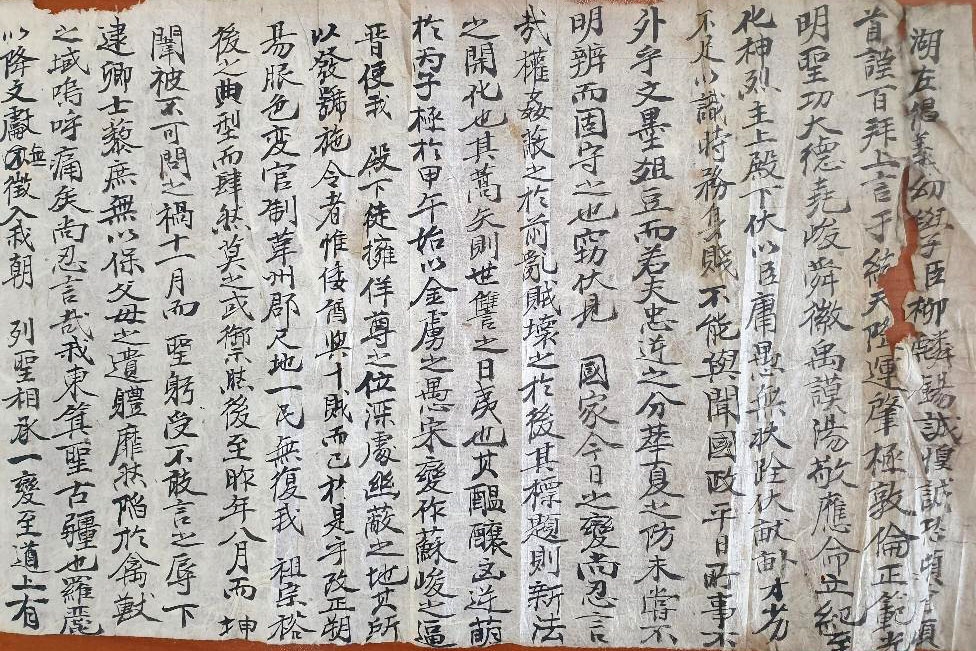 湖左倡義幼學臣柳麟錫誠惶誠恐頓首頓
首謹百拜上言于統天隆運肇極敦倫正範光
明聖功大德堯峻舜徽禹謨湯敬應命立紀至
化神烈主上殿下伏以臣庸愚無狀陸伏畎畝才劣
不足以識時務身賤不能與聞國政平日所事不
外乎文墨俎豆而若夫忠逆之分華夏之防未嘗不
明辨而固守之也竊伏見 國家今日之變尚忍言
哉權姦蔽之於前亂賊壞之於後其標題則新法
之開化也其蒿矣則世讐之日夷也其醞釀凶逆萌
於丙子極於甲午始以金虜之愚宋變作蘇峻之逼
晋使我 殿下徒擁佯尊之位深處幽蔽之地其所
以發號施令者惟倭酋與十賊而已於是乎改正朔
易服色変官制革州郡尺地一民無復我 祖宗裕
後之典型而肆然莫之或禦焉後至昨年八月而 坤
闈被不可問之禍十一月而 聖躬受不敢言之辱下
逮卿士黎庶無以保父母之遺體靡然陷於禽獸
之域嗚呼痛矣尚忍言哉我東箕聖古疆也羅麗
以降文獻無徵入我朝 列聖相承一變至道上有